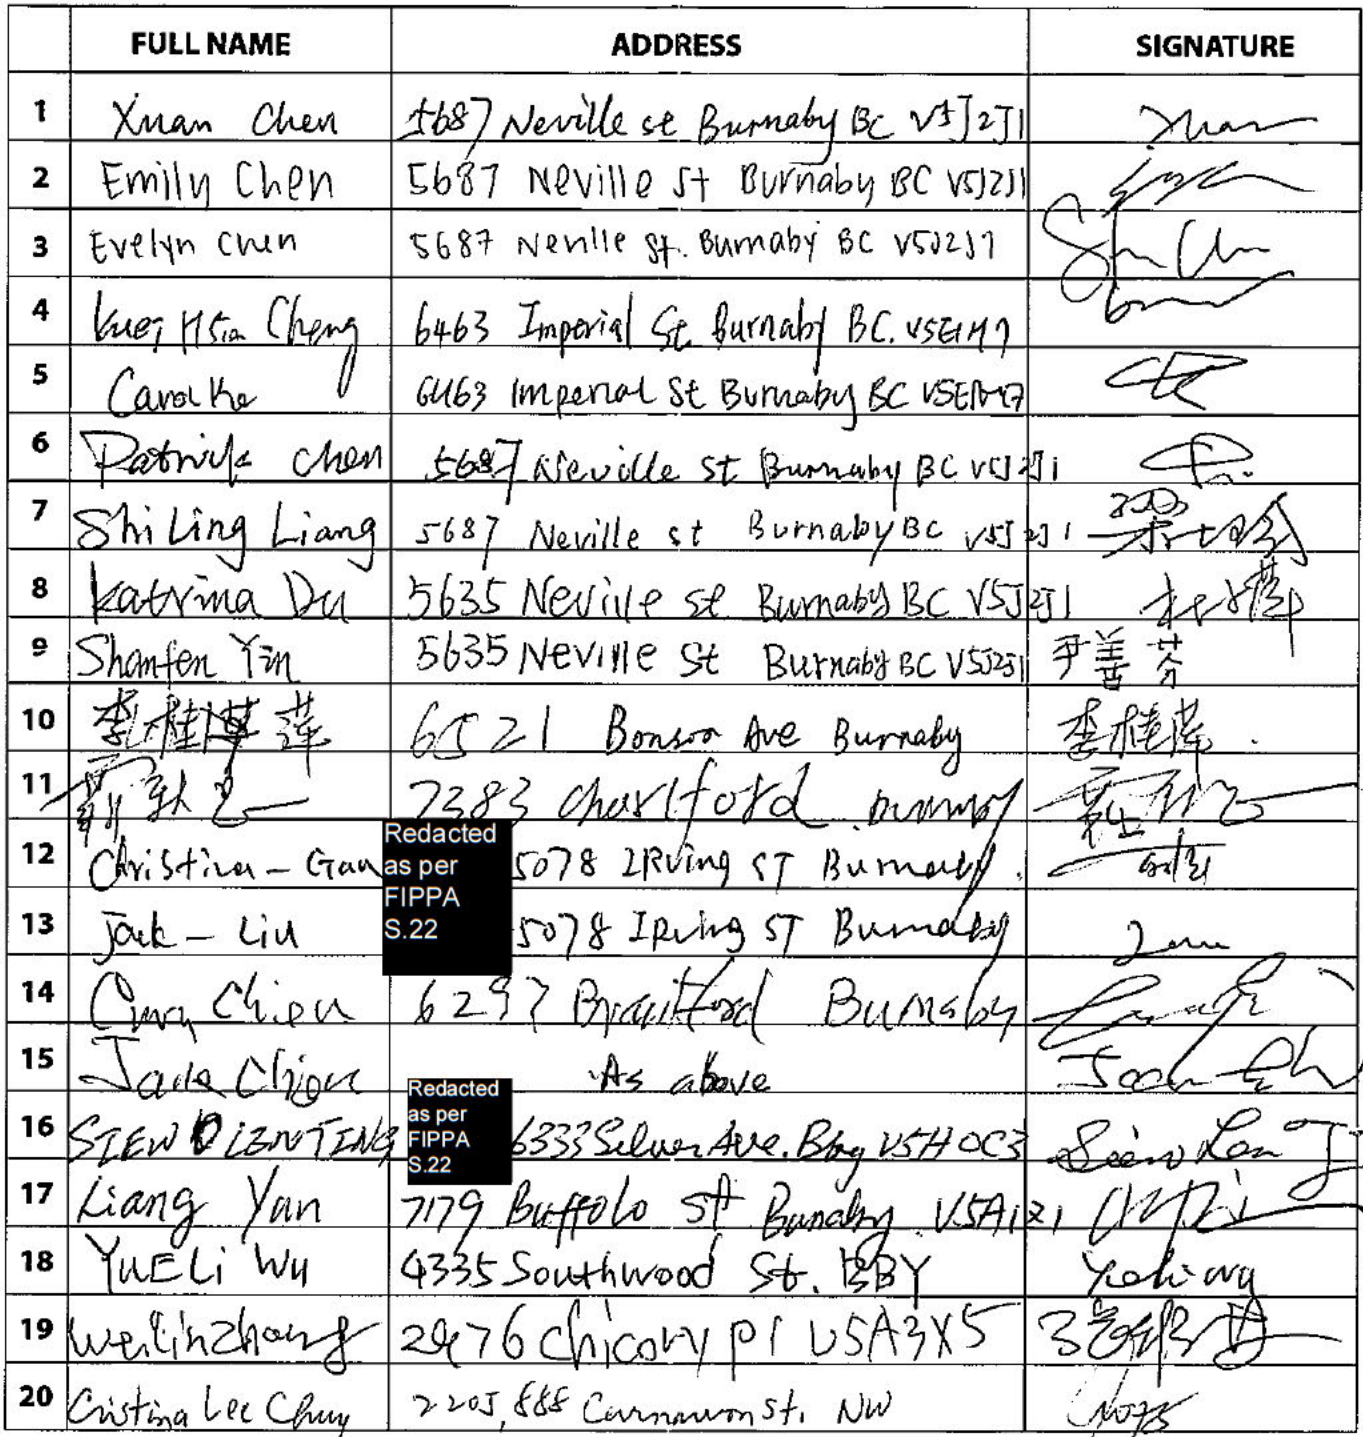 FULL NAME ADDRESS SIGNATURE
1 Xuan Chen 5687 Neville st Burnaby BC V5J2J1 Xuan
2 Emily Chen 5687 Neville St Burnaby BC V5J2J1
3 Evelyn Chen 5687 Neville St. Burnaby BC V5J2J1
4 Kuei Hsia Cheng 6463 Imperial St. Burnaby BC. V5E1M7
5 Carol Ke 6463 Imperial St Burnaby BC
6 Patrick Chen 5687 Neville st Burnaby BC V5J2J1
7 Shi Ling Liang 5687 Neville st Burnaby BC V5J2J1
8 Katrina Du 5635 Neville st Burnaby BC V5J2J1
9 Shanfen Yin 5635 Neville St Burnaby BC V5J2J1 尹善芬
10 李桂 莲 6521 Bonsor Ave Burnaby 李桂莲.
11 7383
12 Christina - Gan Redacted as per FIPPA S.22 5078 IRving ST Burnaby.
13 Jack - Liu 5078 IRving ST Burnaby
14 Chien 6297 Brantford Burnaby
15 Chien As above
16 SIEW LIEN TING Redacted as per FIPPA S.22 6333 Silver Ave. Bby V5H0C3
17 Liang Yan 7179 Buffolo St Burnaby V5A1Z1
18 YuELi Wu 4335 Southwood St. BBY
19 Weilin Zhang 2976 Chicory pl V5A3X5
20 Cristina Lee Chuy 2205, 888 Carnarvon St. NW